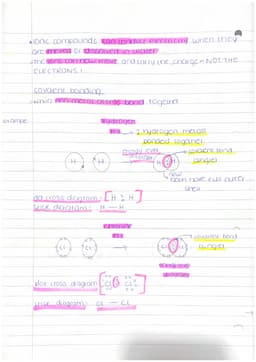 • Ionic compounds can conduct electricity when they
are melted or dissolved in water
• the ions can now move and carry the charge NOT THE
ELECTRONS!
covalent bonding
when non-metal atoms bond together
example
Hydrogen
H2 → 2 hydrogen
bonded together
covalent bond
H H → H H (single)
both have full outer
shell
dot cross diagram: [H H]
stick diagram: H — H
covalent bond
Cl Cl → Cl Cl (single)
dot cross diagram [Cl Cl]
stick diagram: Cl — Cl